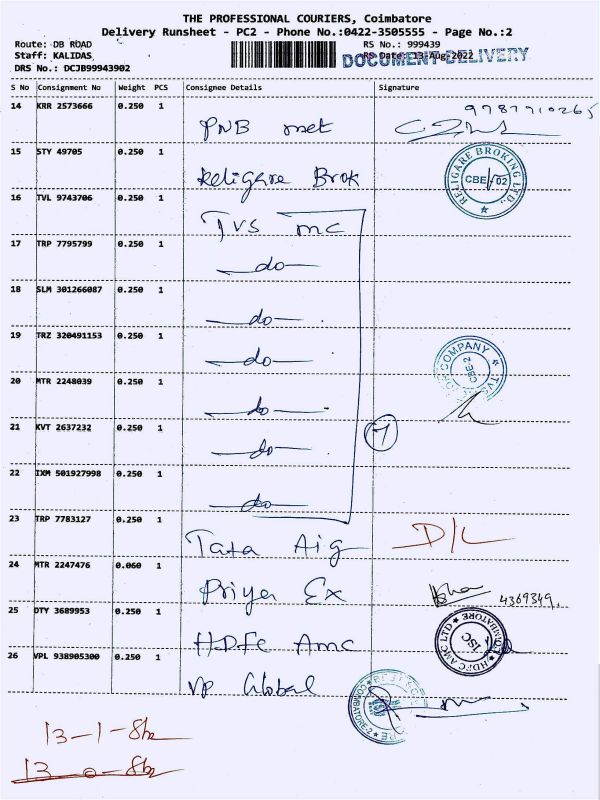 THE PROFESSIONAL COURIERS, Coimbatore
Delivery Runsheet - PC2 - Phone No.:0422-3505555 - Page No.:2
Route: DB ROAD
RS No.: 999439
Staff: KALIDAS
RS Date: 13-Aug-2022
DOCUMENT DELIVERY
DRS No.: DCJB99943902
S No Consignment No Weight PCS Consignee Details Signature
14 KRR 2573666 0.250 1 PNB met 9787710265
15 STY 49705 0.250 1 Religare Brok
RELIGARE BROKING LTD.
CBE-02
16 TVL 9743706 0.250 1 TVS mc
17 TRP 7795799 0.250 1 do
18 SLM 301266087 0.250 1 do
19 TRZ 320491153 0.250 1 do
COMPANY TVS
CBE 2
20 MTR 2248039 0.250 1 do
21 KVT 2637232 0.250 1 do
7
22 IXM 501927998 0.250 1 do
23 TRP 7783127 0.250 1 Tata Aig D/L
24 MTR 2247476 0.060 1 Priya Ex 4369349
25 DTY 3689953 0.250 1 HDFC Amc
HDFC AMC LTD COIMBATORE
ISC
26 VPL 938905300 0.250 1 VP Global
COIMBATORE-2
13-1-8
13-0-8